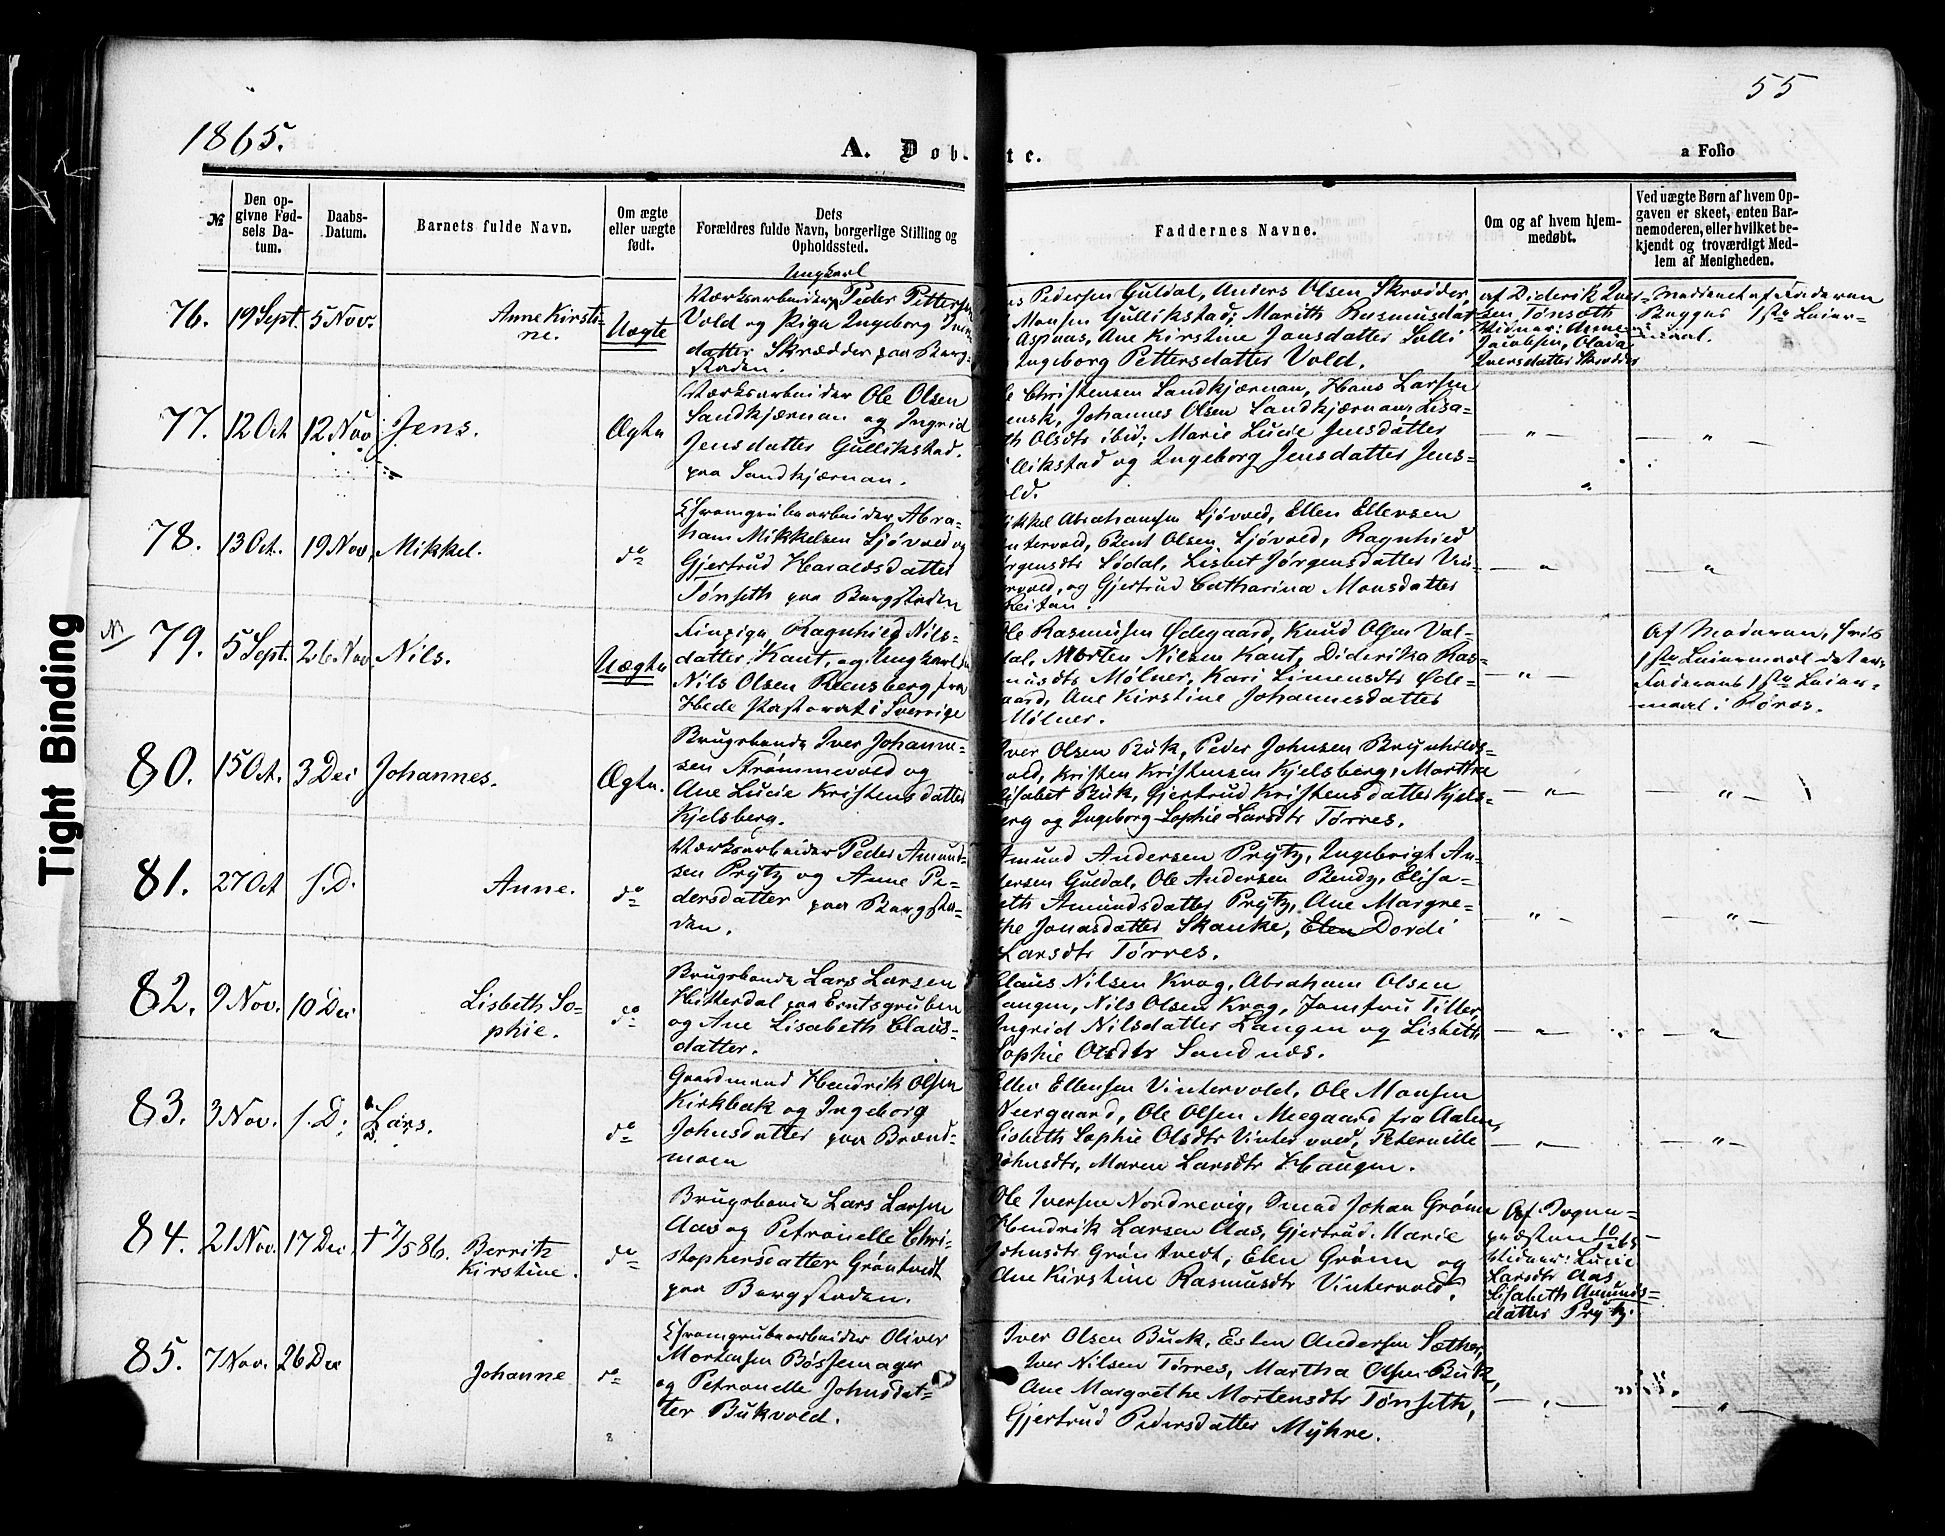 55
1865.
A. Døb te.
a Folio
№
Den op-
givne Fød-
sels Da-
tum.
Daabs-
Datum.
Barnets fulde Navn.
Om ægte
eller uægte
født.
Dets
Forældres fulde Navn, borgerlige Stilling og
Opholdssted.
Faddernes Navne.
Om og af hvem hjem-
medøbt.
Ved uægte Børn af hvem Op-
gaven er skeet, enten Bar-
nemoderen, eller hvilket be-
kjendt og troværdigt Med-
lem af Menigheden.
76. 19 Sept. 5 Nov.
Anne Kirsti-
ne.
Uægte
Ungkarl
Værksarbeider Peder Pettersen
Vold og Pige Ingeborg
datter Skrædder paa Berg-
staden.
Pedersen Guldal, Anders Olsen Skrædder,
Monsen Gullikstad, Marith Rasmusdat
Aspaas, Ane Kirstine Jonsdatter Solli
Ingeborg Pettersdatter Vold.
af Diderik Iver-
sen Tønseth
Vidner: Anne
Jacobsen, Olava
Iversdatter Skrædder
Moderen af Faderen
Begges 1ste Leier-
maal.
77. 12 Oct 12 Nov Jens.
Ægte
Værksarbeider Ole Olsen
Sandkjærnan og Ingrid
Jensdatter Gullikstad.
paa Sandkjærnan.
Christensen Sandkjærnan, Hans Larsen
ensk, Johannes Olsen Sandkjærnan, Lisa-
th Olsdtr ibid; Marie Lucie Jensdatter
llikstad og Ingeborg Jensdatter Jens-
old.
— " — — " —
78. 13 Oct. 19 Nov, Mikkel.
do
Chromgrubearbeider Abra-
ham Mikkelsen Sjøvold og
Gjertrud Haraldsdatter
Tønseth paa Bergstaden
ikkel Abrahamsen Sjøvold, Ellen Ellersen
intervold, Bent Olsen Sjøvold, Ragnhild
ørgensdtr Sødal, Lisbet Jørgensdatter Vin-
rvold, og Gjertrud Catharina Monsdatter
Reitan.
— " — — " —
N
79. 5 Sept. 26 Nov Nils.
Uægte
Tinpige Ragnhild Nils-
datter Kant, og Ungkarl
Nils Olsen Reensberg fra
Hede Pastorat i Sverrige
Ole Rasmusen Ødegaard, Knud Olsen Vol-
dal, Morten Nilsen Kant, Diderika Ras-
musdtr Mølner, Kari Simensdtr Øde-
gaard, Ane Kirstine Johannesdatter
Mølner.
— " —
Af Moderen, hvis
1ste Leiermaal det er.
Faderens 1ste Leier-
maal i Røros.
80. 15 Oct. 3 Dec Johannes.
Ægte.
Brugsbonde Iver Johanne-
sen Strømmevold og
Ane Lucie Kristensdatter
Kjelsberg.
Iver Olsen Buk, Peder Johnsen Brynhilds-
vold, Kristen Kristensen Kjelsberg, Martha
Elisabet Buk, Gjertrud Kristensdatter Kjels-
berg og Ingeborg Sophie Larsdtr Tørres.
— " — — " —
81. 27 Oct s. D.
Anne.
do
Værksarbeider Peder Amund-
sen Prytz og Anne Pe-
dersdatter paa Bergsta-
den.
Amund Andersen Prytz, Ingebrigt An-
dersen Guldal, Ole Andersen Bendz, Elisa-
beth Amundsdatter Prytz, Ane Margre-
the Jonasdatter Skanke, Elen Dordi
Larsdtr Tørres.
— " — — " —
82. 9 Nov. 10 Dec
Lisbeth So-
phie.
do
Brugsbonde Lars Larsen
Hitterdal paa Erntsgruben
og Ane Lisabeth Claus-
datter.
Claus Nilsen Krog, Abraham Olsen
Langen, Nils Olsen Krog, Jomfru Tiller,
Ingrid Nilsdatter Langen og Lisbeth
Sophie Olsdtr Sandnæs.
— " — — " —
83. 3 Nov. s. D. Lars.
do
Gaardmand Hendrik Olsen
Kirkbak og Ingeborg
Johnsdatter paa Brænd-
moen
Eller Ellensen Vintervold, Ole Monsen
Neergaard, Ole Olsen Meegaard fra Aalen,
Lisbeth Sophie Olsdtr Vintervold, Peternille
Johnsdtr, Maren Larsdtr Haugen.
— " — — " —
84. 21 Nov. 17 Dec † 7/5 86. Berrith
Kirstine.
do
Brugsbonde Lars Larsen
Aas og Petronelle Chri-
stophersdatter Grøntvedt
paa Bergstaden.
Ole Iversen Nordrevig, Smed Johan Grønn
Hendrik Larsen Aas, Gjertrud Marie
Johnsdtr Grøntvedt, Elen Grønn og
Ane Kirstine Rasmusdtr Vintervold.
Af Sogne-
præsten
Vidner: Lucie
Larsdtr Aas,
Lisabeth Amunds-
datter Prytz.
—
85. 7 Nov. 26 Dec
Johanne
do
Chromgrubearbeider Oliver
Mortensen Bøssemager
og Petronelle Johnsdat-
ter Bukvold.
Iver Olsen Buck, Esten Andersen Sæther,
Iver Nilsen Tørres, Martha Olsen Buk,
Ane Margrethe Mortensdtr Tønseth,
Gjertrud Pedersdatter Myhre.
— " — — " —
8
Tight Binding